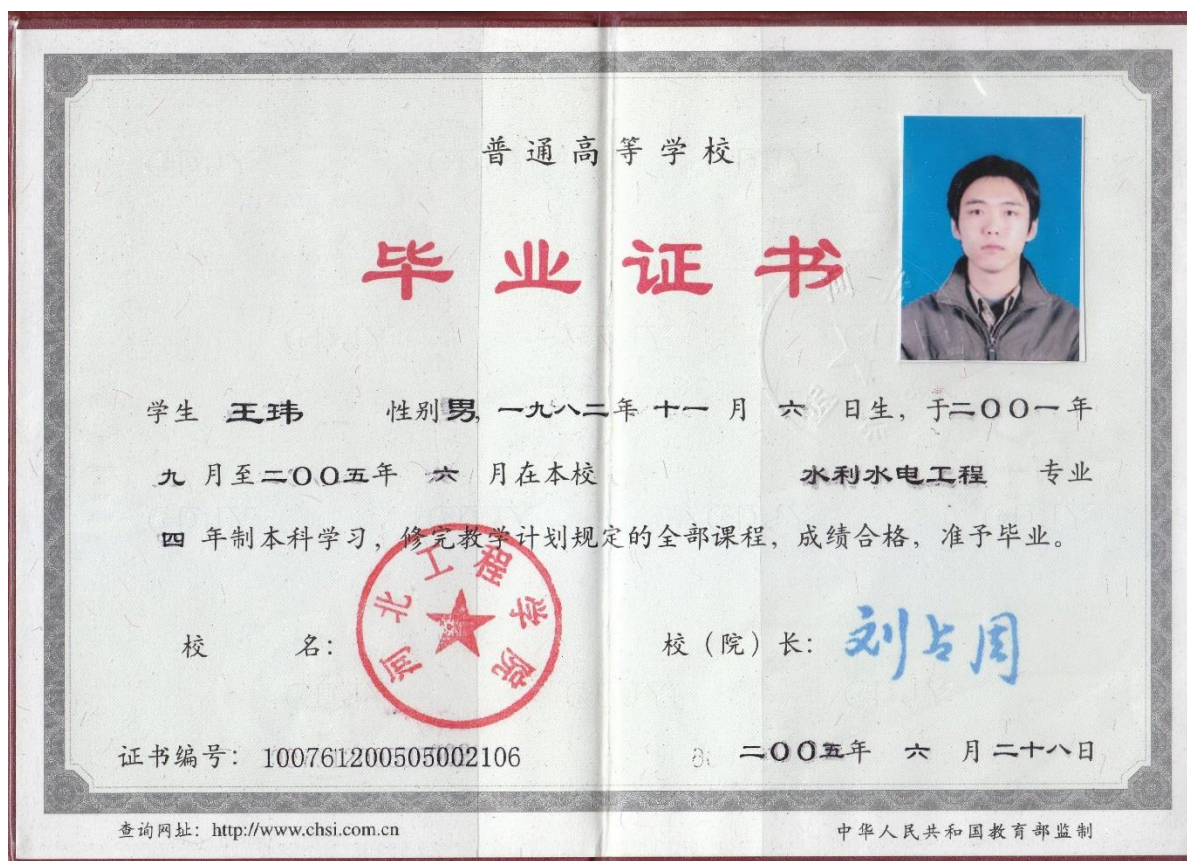 普通高等学校
毕业证书
学生 王玮 性别 男, 一九八二年 十一 月 六 日生, 于二〇〇一年
九 月至二〇〇五年 六 月在本校 水利水电工程 专业
四 年制本科学习, 修完教学计划规定的全部课程, 成绩合格, 准予毕业。
河北工程学院
校 名: 校(院)长: 刘占周
证书编号: 100761200505002106 二〇〇五年 六 月二十八日
查询网址: http://www.chsi.com.cn 中华人民共和国教育部监制